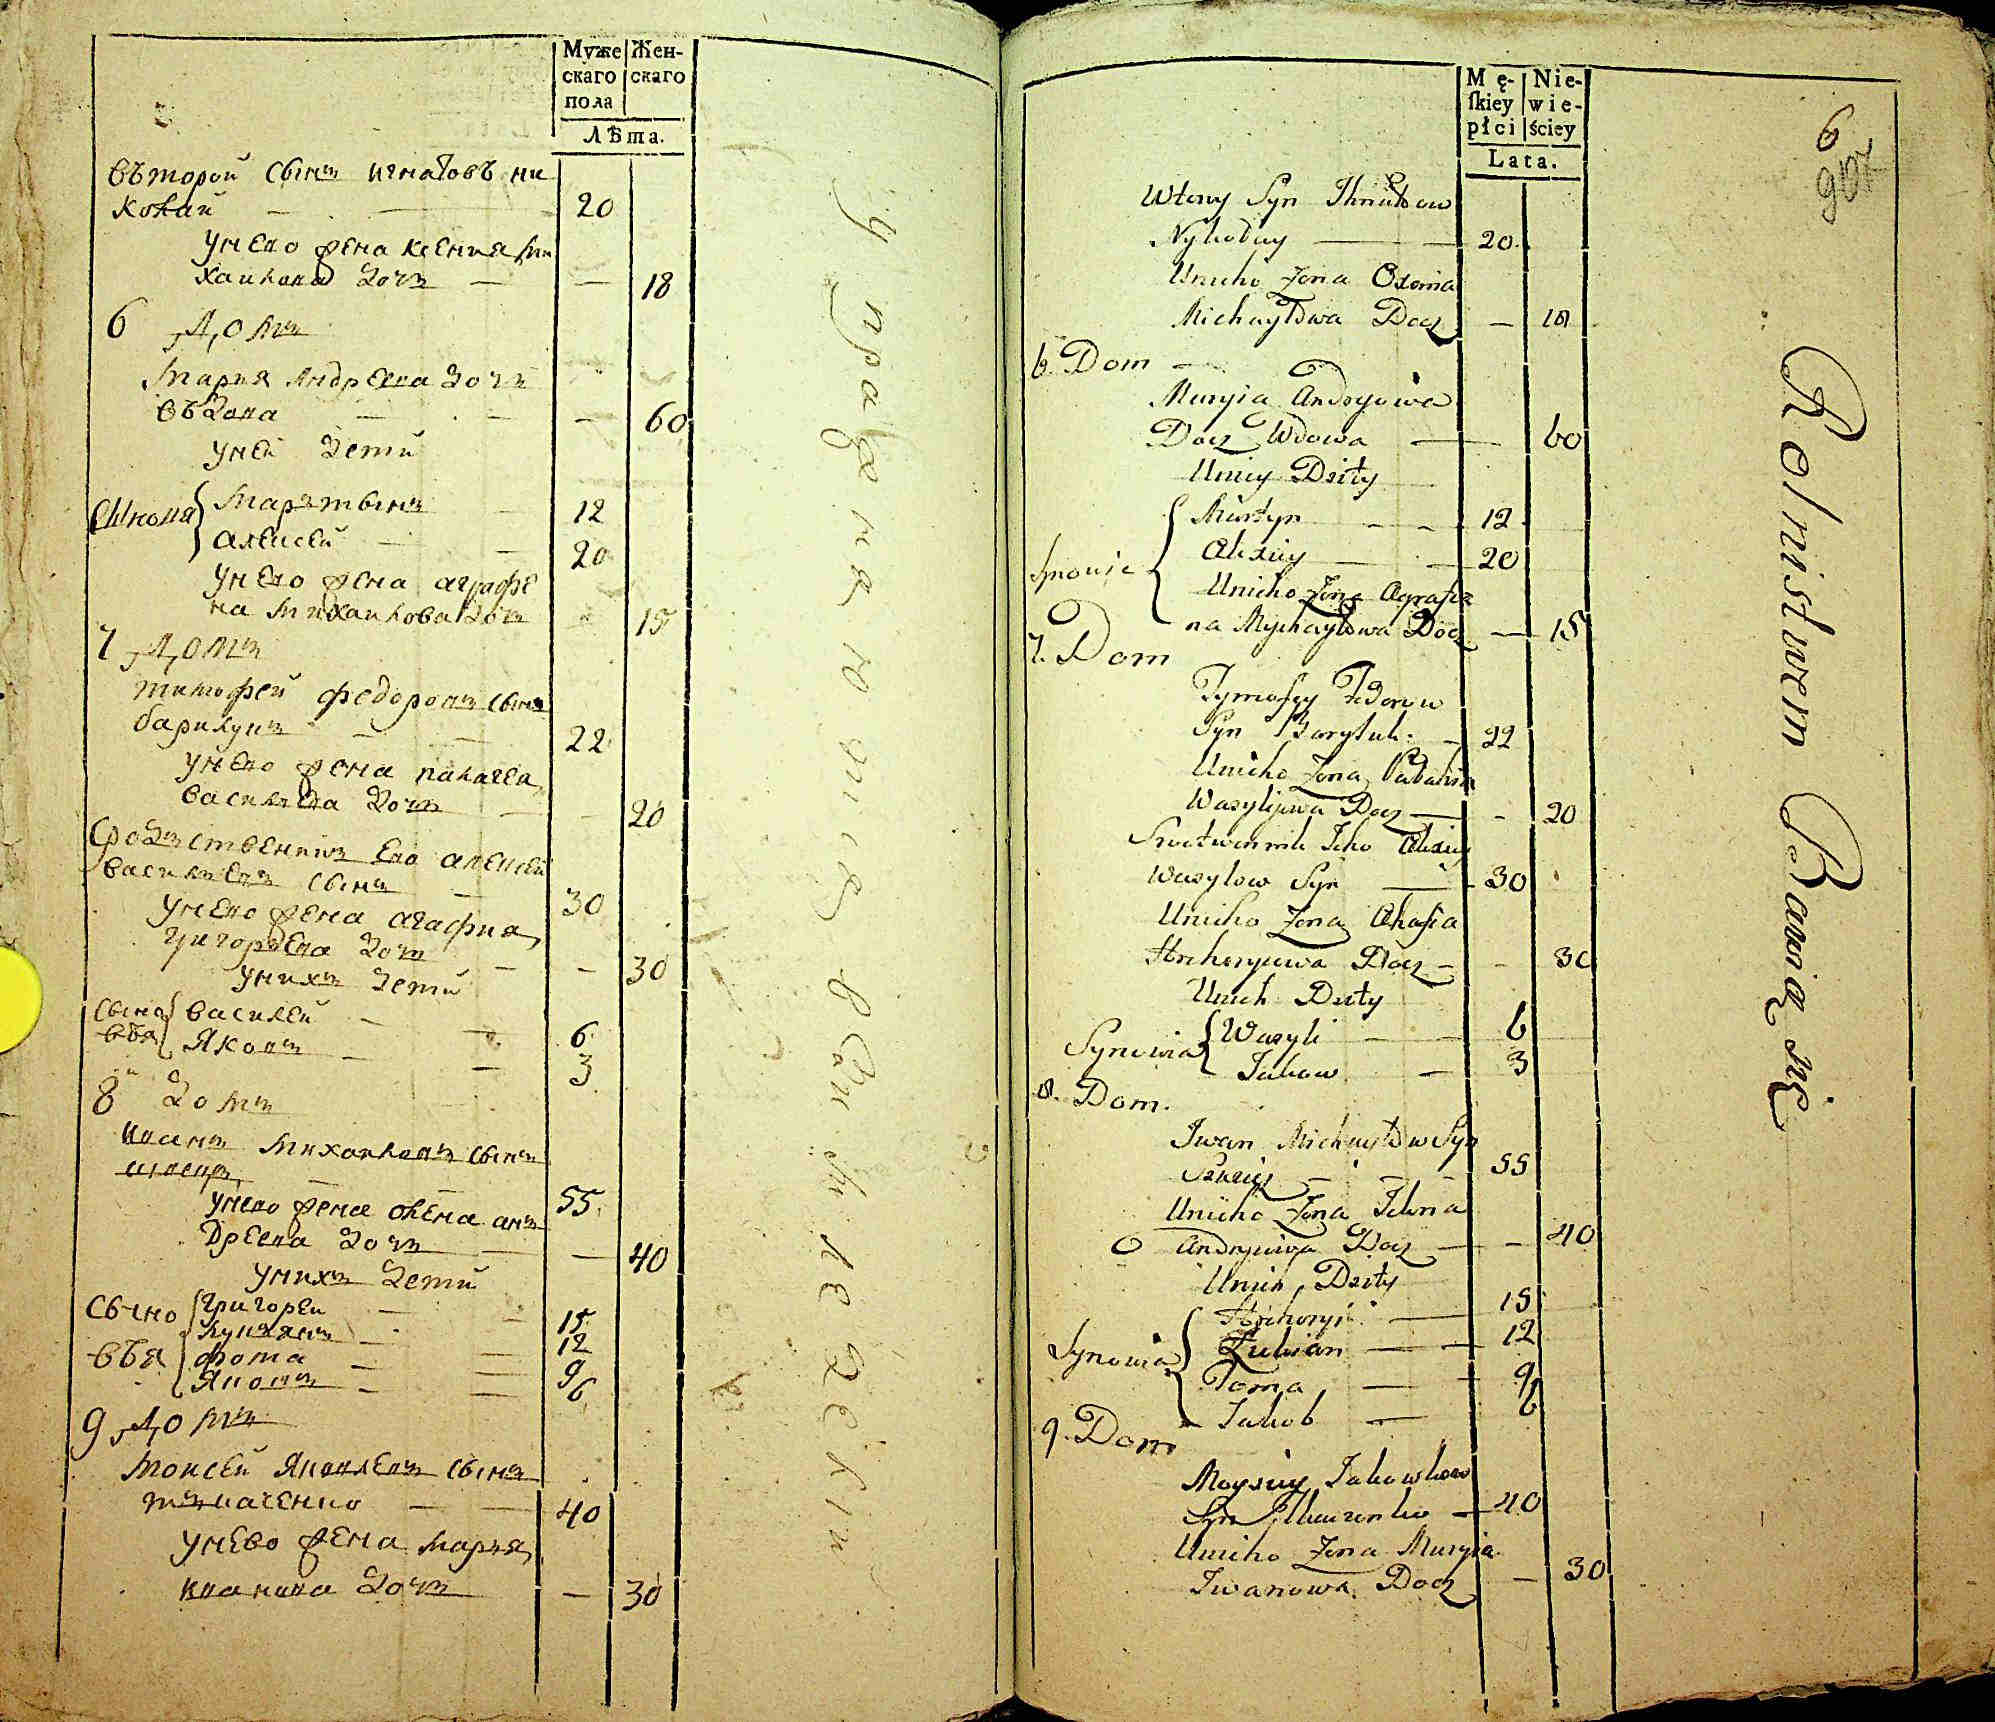 Муже
скаго
пола
Жен-
скаго
Лѣта.
въторой сынъ игнатовъ ни
колай — 20
унево жена ксения ми
хаилова дочъ — — 18
6 домъ
мария андреева дочъ
въдова — — 60
уней дети
сынова мартынъ 12
алексей — 20
унево жена аграфе
на михаилова дочъ 15
7 домъ
тимофей федоровъ сынъ
барилукъ — 22
унево жена палагея
васильева дочъ — 20
сродственникъ ево алексей
васильевъ сынъ — 30
унево жена агафия
григорьева дочъ — — 30
унихъ дети
сыно василей — 6
вья яковъ — 3
8 домъ
иванъ михаиловъ сынъ
— 55
унево жена олена анъ
дреева дочъ — — 40
унихъ дети
сыно григорей — 15
лукъянъ — 12
вья фома — 9
яковъ — 6
9 домъ
моисей яковлевъ сынъ
ткаченко — 40
унево жена марья
иванова дочъ — 30
упражняются в земледелии
Mę-
ſkiey
płci
Nie-
wie-
ściey
Lata.
6
907
Wtory Syn Ihnatow
Nykołay — 20
Unieho Zona Oxenia
Michayłowa Docz — 18
6. Dom —
Maryia Andryiowa
Docz Wdowa — 60
Uniey Dzity
Synowie Martyn — 12
Alexiey — 20
Unieho Zona Agrafie
na Mychayłowa Docz — 15
7. Dom
Tymofey Fedorow
Syn Baryłuk — 22
Unieho Zona Pałahia
Wasylijewa Docz — 20
Srodtwennik Jeho Alexiey
Wasylow Syn — 30
Unieho Zona Ahafia
Hrehoryiewa Docz — 30
Unich Dzity
Synowia Wasyli — 6
Jakow — 3
8. Dom.
Iwan Michayłow Syn
— 55
Unieho Zona Jelena
Andryiewa Docz — 40
Unich Dzity
Hrehoryi — 15
Synowia Łukian — 12
Toma — 9
Jakob — 6
9. Dom
Moysiey Jakowlow
Syn Tkaczenko — 40
Unieho Zona Maryia
Iwanowa Docz — 30
Rolnistwem Bawią się